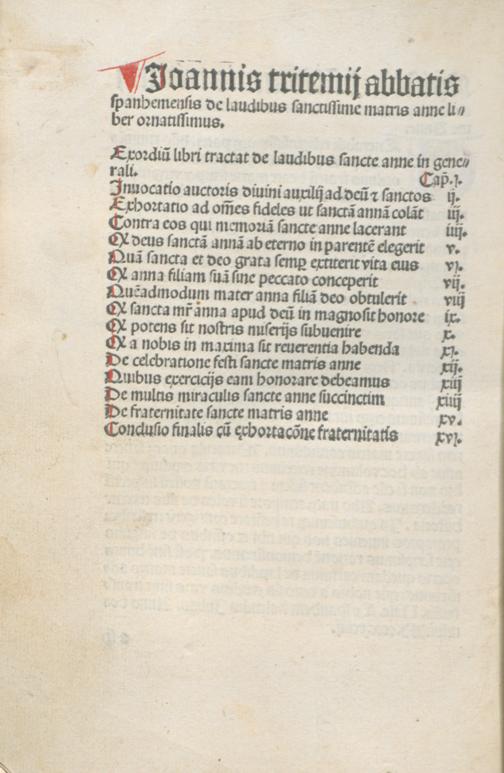 Joannis tritemij abbatis
spanhemensis de laudibus sanctissime matris anne li⸗
ber ornatissimus.
Exordiū libri tractat de laudibus sancte anne in gene⸗
rali. Cap. j.
Inuocatio auctoris diuini auxilij ad deū ⁊ sanctos ij.
Exhortatio ad om̄es fideles ut sanctā annā colāt iij.
Contra eos qui memoriā sancte anne lacerant iiij.
Q̇ deus sanctā annā ab eterno in parentē elegerit v.
Quā sancta et deo grata semꝑ extiterit vita eius vj.
Q̇ anna filiam suā sine peccato conceperit vij.
Quēadmodum mater anna filiā deo obtulerit viij
Q̇ sancta mr̄ anna apud deū in magno sit honore ix.
Q̇ potens sit nostris miserijs subuenire x.
Q̇ a nobis in maxima sit reuerentia habenda xj.
De celebratione festi sancte matris anne xij.
Quibus exercicijs eam honorare debeamus xiij
De multis miraculis sancte anne succinctim xiiij
De fraternitate sancte matris anne xv.
Conclusio finalis cū exhortacōne fraternitatis xvj.